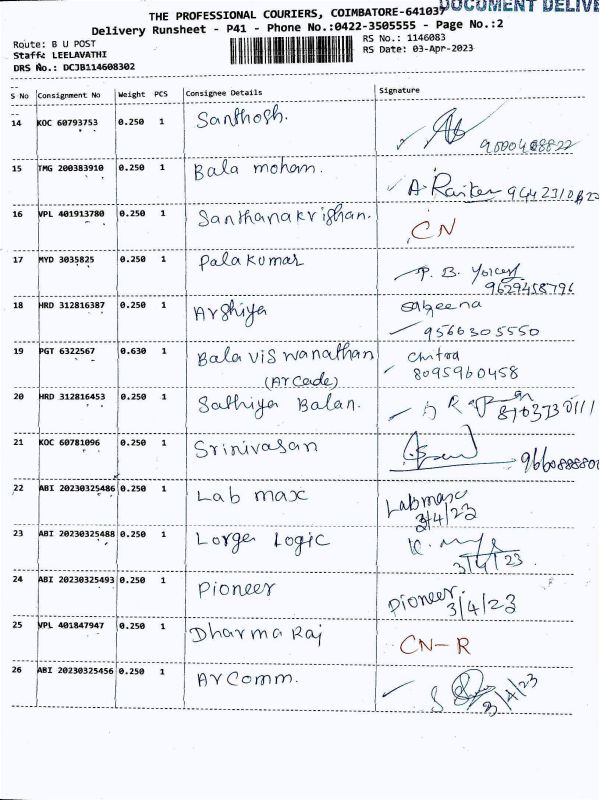 DOCUMENT DELIVE
THE PROFESSIONAL COURIERS, COIMBATORE-641037
Delivery Runsheet - P41 - Phone No.:0422-3505555 - Page No.:2
Route: B U POST RS No.: 1146083
Staff: LEELAVATHI RS Date: 03-Apr-2023
DRS No.: DCJB114608302
S No Consignment No Weight PCS Consignee Details Signature
14 KOC 60793753 0.250 1 Santhosh.
15 TMG 200383910 0.250 1 Bala mohan.
16 VPL 401913780 0.250 1 Santhanakrishan. CN
17 MYD 3035825 0.250 1 Palakumar
9629458796
18 HRD 312816387 0.250 1 Arshiya Sabeena
9566305550
19 PGT 6322567 0.630 1 Bala viswanathan Chitra
(Arcade) 8095960458
20 HRD 312816453 0.250 1 Sathiya Balan.
21 KOC 60781096 0.250 1 Srinivasan
22 ABI 20230325486 0.250 1 Lab max Labmax
3/4/23
23 ABI 20230325488 0.250 1 Lorge Logic
3/4/23.
24 ABI 20230325493 0.250 1 Pioneer Pioneer.
3/4/23
25 VPL 401847947 0.250 1 Dharma Raj CN-R
26 ABI 20230325456 0.250 1 Ar Comm.
3/4/23